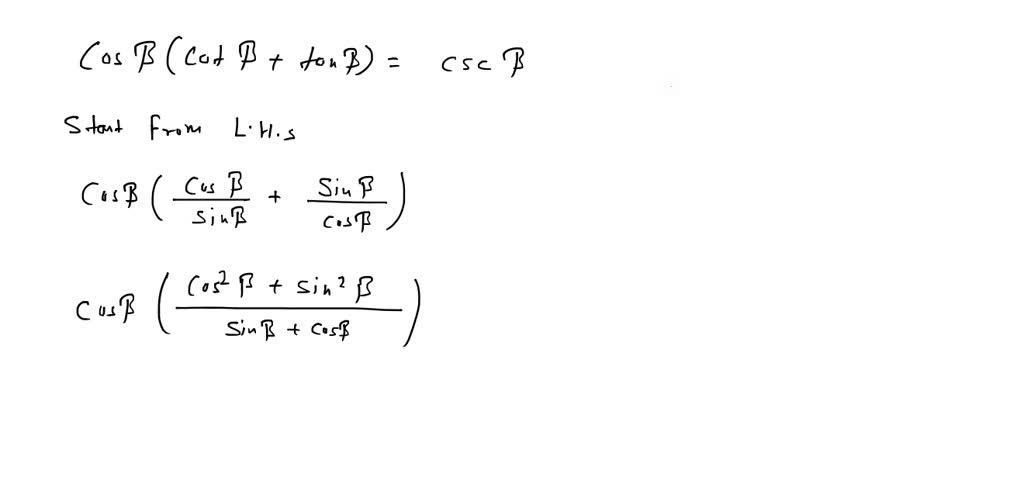 Cos β (Cot β + tan β) = csc β
Start from L.H.S
Cos β ( Cos β / sin β + Sin β / cos β )
Cos β ( Cos² β + sin² β / Sin β + Cos β )